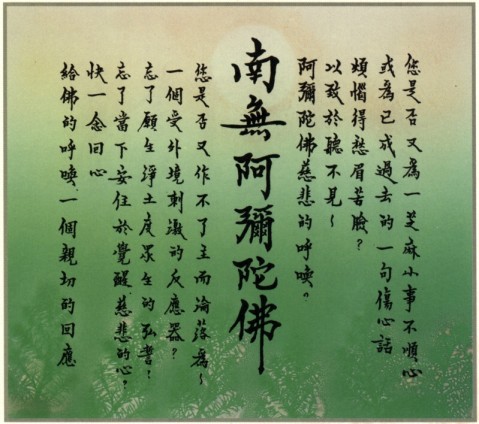 您是否又為一芝麻小事不順心
或為已成過去的一句傷心話
煩惱得愁眉苦臉？
以致於聽不見～
阿彌陀佛慈悲的呼喚。
南無阿彌陀佛
您是否又作不了主而淪落為～
一個受外境刺激的反應器？
忘了願生淨土度眾生的弘誓！
忘了當下安住於覺醒、慈悲的心？
快一念回心
給佛的呼喚一個親切的回應